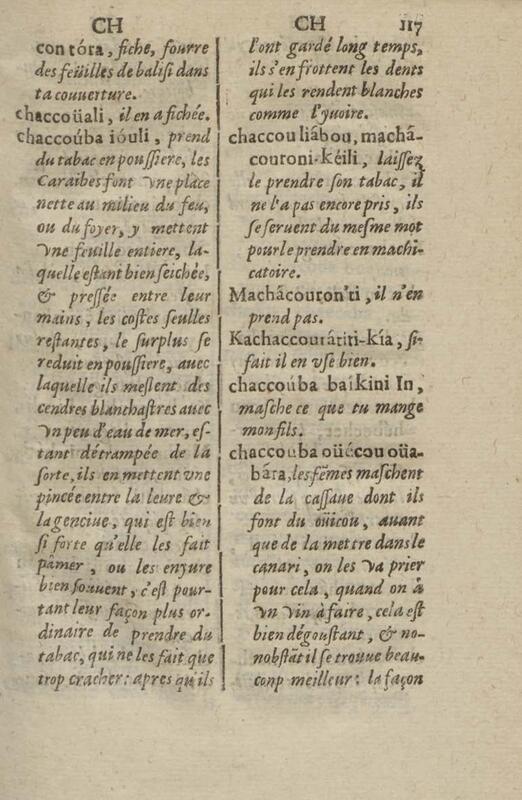 CH
con tóra, fiche, fourre
des feüilles de balisi dans
ta couuerture.
chaccoüali, il en a fichée.
chaccoúba ióuli, prend
du tabac en poussiere, les
Caraibes font vne place
nette au milieu du feu,
ou du foyer, y mettent
vne feuille entiere, la-
quelle estant bien seichée,
& pressée entre leur
mains, les costes seulles
restantes, le surplus se
reduit en poussiere, auec
laquelle ils meslent des
cendres blanchastres auec
vn peu d'eau de mer, es-
tant détrampée de la
sorte, ils en mettent vne
pincée entre la leure &
la genciue, qui est bien
si forte qu'elle les fait
pâmer, ou les enyure
bien souuent, c'est pour-
tant leur façon plus or-
dinaire de prendre du
tabac, qui ne les fait que
trop cracher: apres qu'ils
CH 117
l'ont gardé long temps,
ils s'en frottent les dents
qui les rendent blanches
comme l'yuoire.
chaccou liábou, machá-
couroni-kéili, laissez
le prendre son tabac, il
ne l'a pas encore pris, ils
se seruent du mesme mot
pour le prendre en machi-
catoire.
Machácouron'ti, il n'en
prend pas.
Kachaccourátiti-kía, si-
fait il en vse bien.
chaccoúba baikini In,
masche ce que tu mange
mon fils.
chaccouba oüécou oüa-
bára, les fẽmes maschent
de la cassaue dont ils
font du oüicou, auant
que de la mettre dans le
canari, on les va prier
pour cela, quand on à
vn vin à faire, cela est
bien dégoustant, & no-
nobstãt il se trouue beau-
conp meilleur: la façon